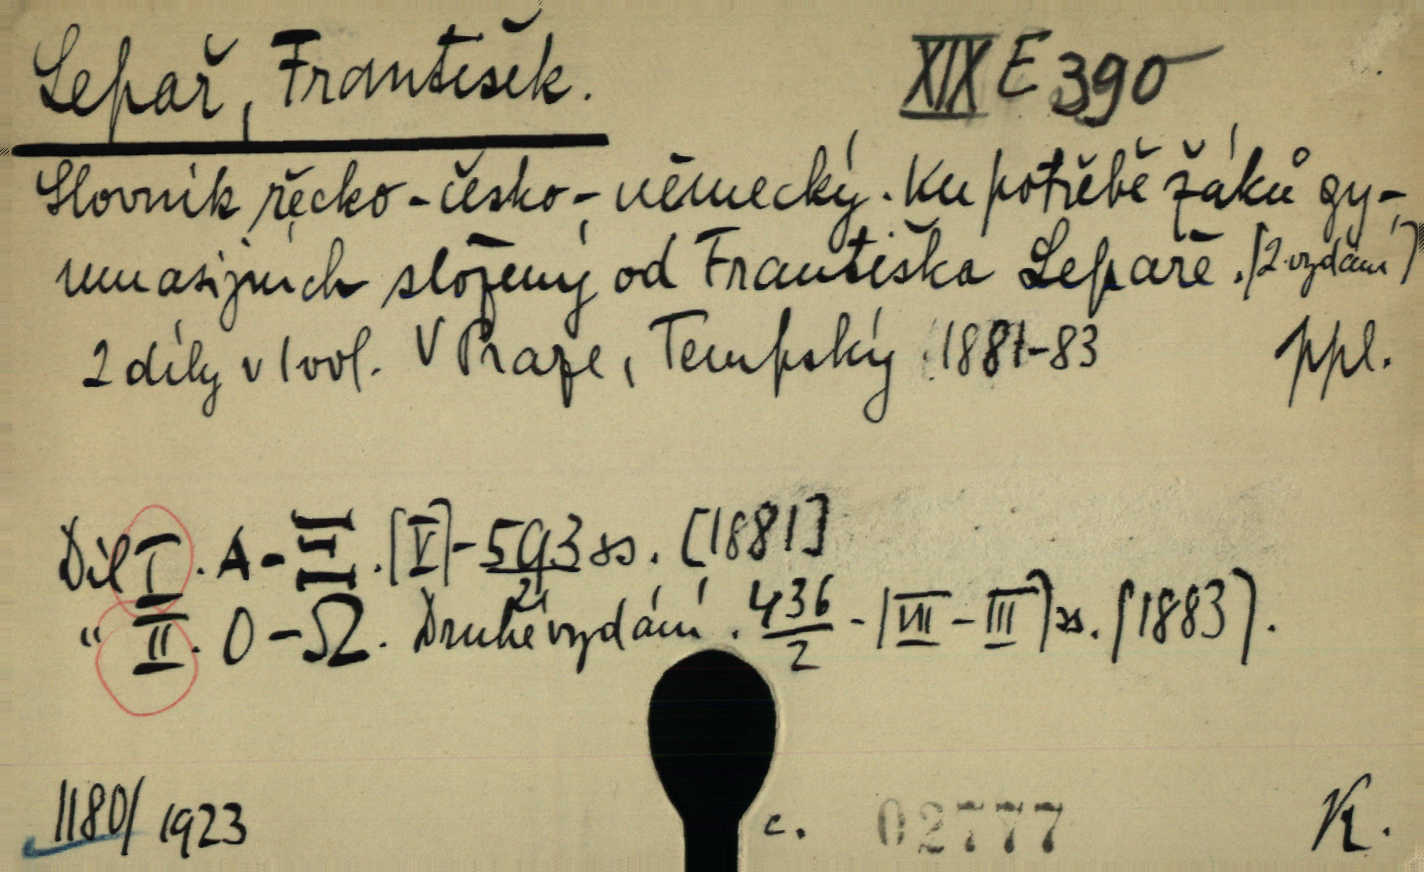 Lepař, František. XIX E 390
Slovník řecko-česko-německý. Ku potřebě žáků gy-
mnasijních složený od Františka Lepaře. [2. vydání]
2 díly v 1 vol. V Praze, Tempský. 1881-83 ppl.
Díl I. A-Ξ. [V]-593 ss. [1881]
2
" II. O-Ω. Druhé vydání. 436/2 - [VII-III] ss. [1883].
1180/1923 c. 02777 K.